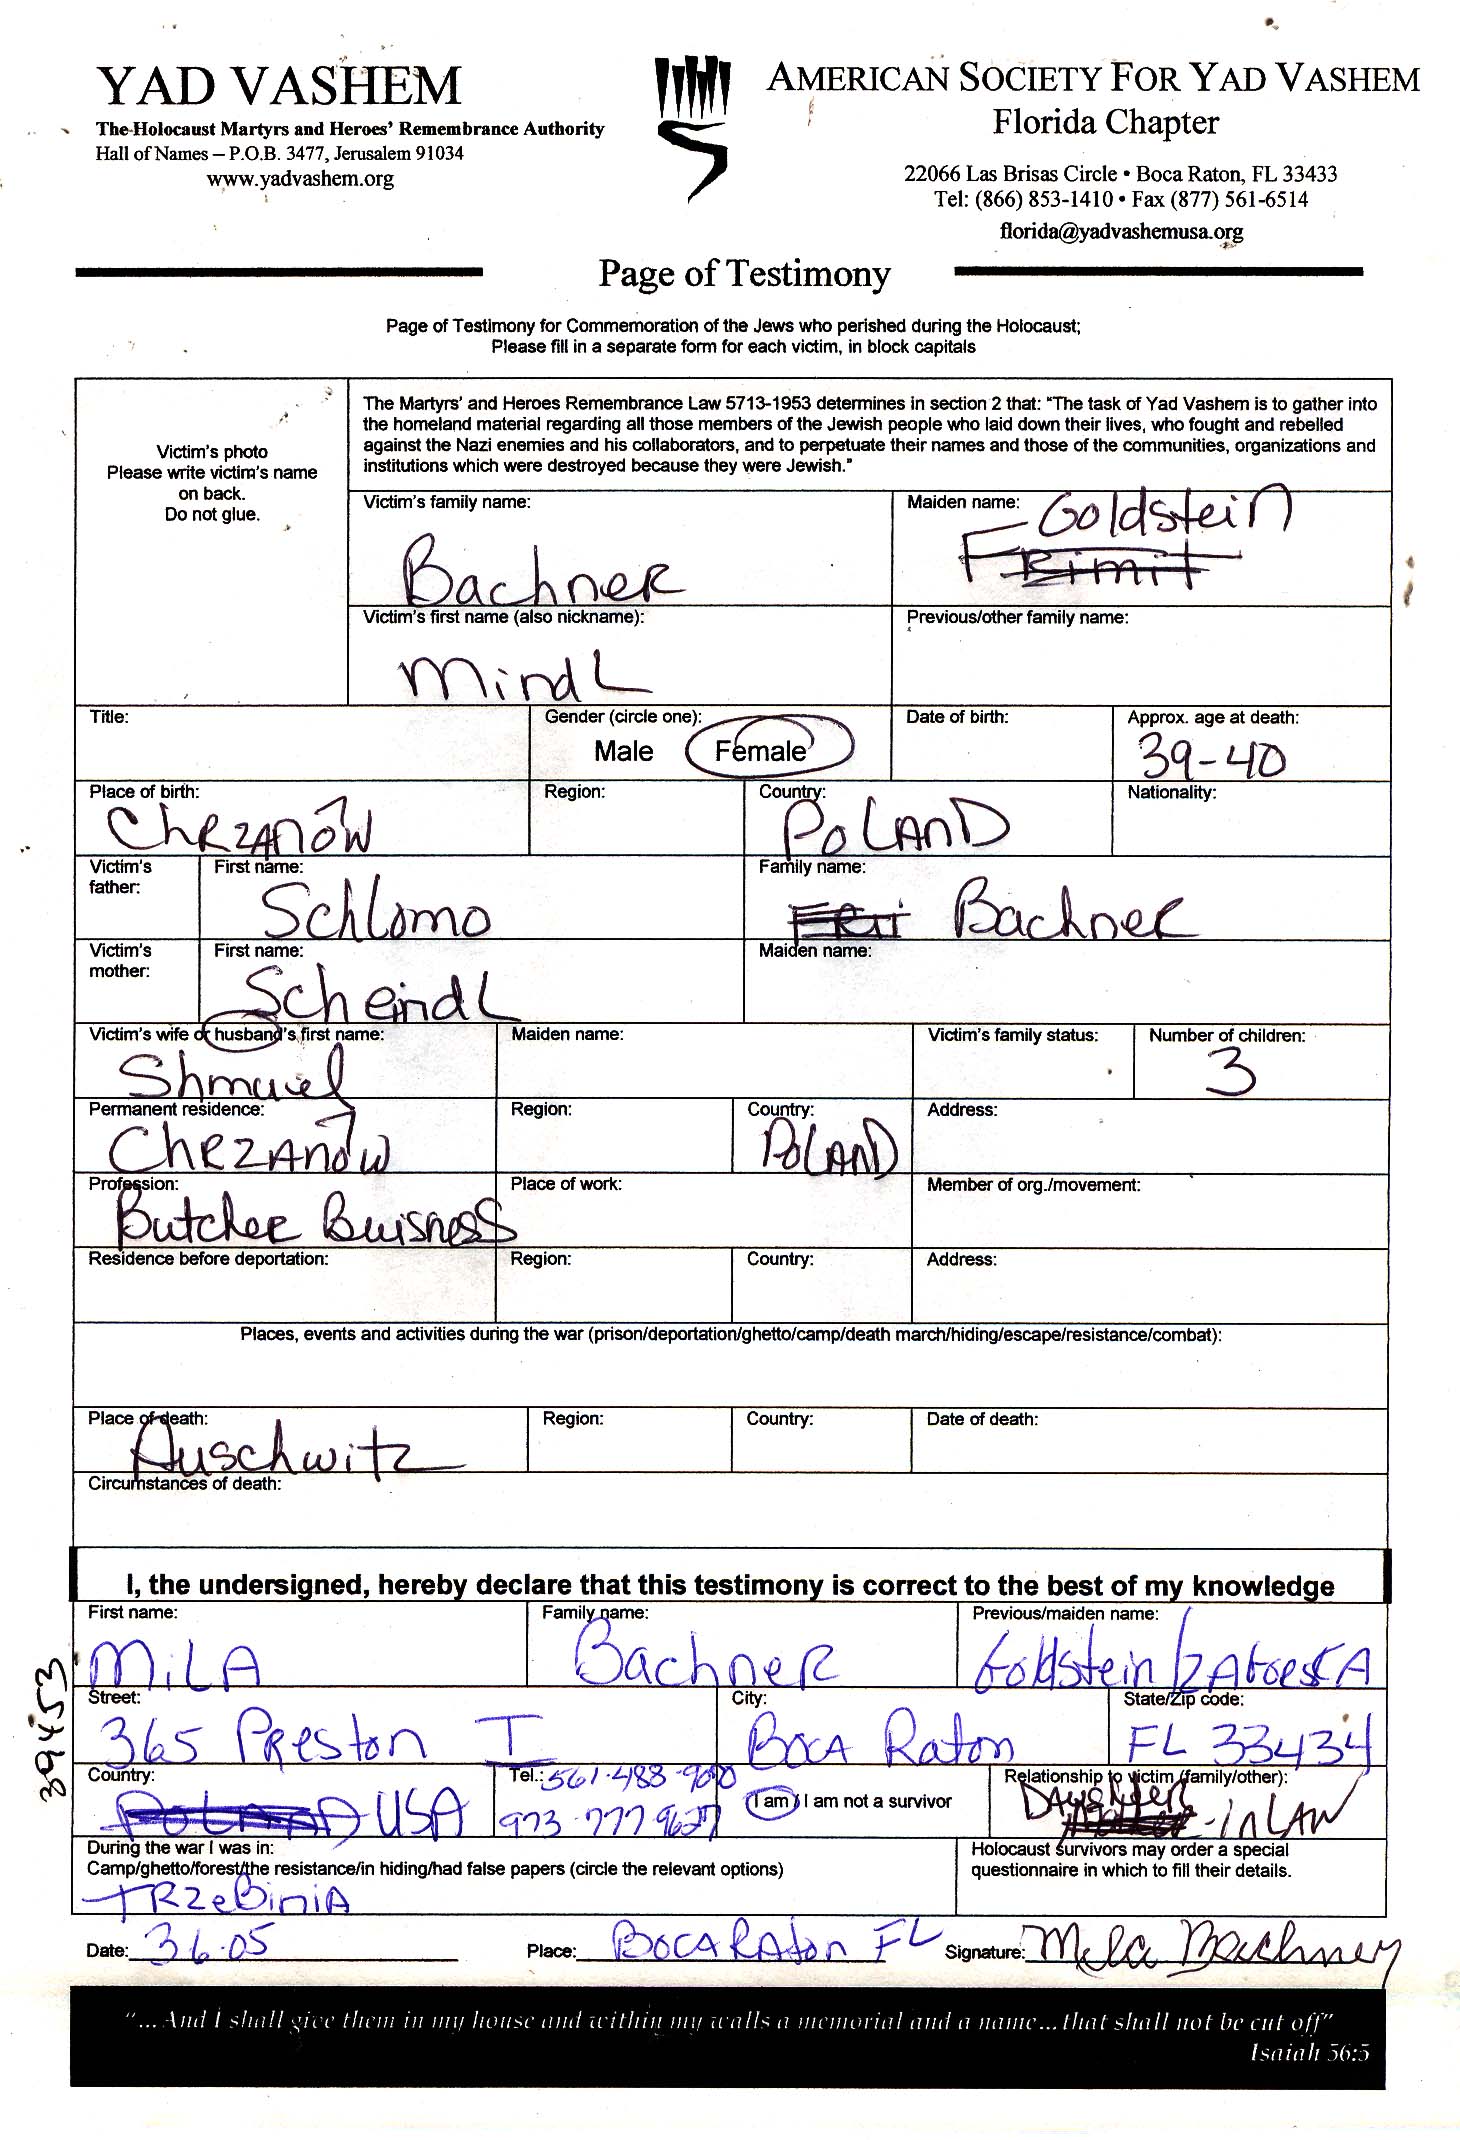 YAD VASHEM
The Holocaust Martyrs and Heroes' Remembrance Authority
Hall of Names – P.O.B. 3477, Jerusalem 91034
www.yadvashem.org
AMERICAN SOCIETY FOR YAD VASHEM
Florida Chapter
22066 Las Brisas Circle • Boca Raton, FL 33433
Tel: (866) 853-1410 • Fax (877) 561-6514
florida@yadvashemusa.org
Page of Testimony
Page of Testimony for Commemoration of the Jews who perished during the Holocaust;
Please fill in a separate form for each victim, in block capitals
Victim's photo
Please write victim's name
on back.
Do not glue.
The Martyrs' and Heroes Remembrance Law 5713-1953 determines in section 2 that: "The task of Yad Vashem is to gather into
the homeland material regarding all those members of the Jewish people who laid down their lives, who fought and rebelled
against the Nazi enemies and his collaborators, and to perpetuate their names and those of the communities, organizations and
institutions which were destroyed because they were Jewish."
Victim's family name: Maiden name: Goldstein
Bachner Frimit
Victim's first name (also nickname): Previous/other family name:
Mindl
Title: Gender (circle one): Date of birth: Approx. age at death:
Male Female 39-40
Place of birth: Region: Country: Nationality:
Chrzanów Poland
Victim's father: First name: Family name:
Schlomo Bachner
Victim's mother: First name: Maiden name:
Scheindl
Victim's wife or husband's first name: Maiden name: Victim's family status: Number of children:
Shmuel 3
Permanent residence: Region: Country: Address:
Chrzanów Poland
Profession: Place of work: Member of org./movement:
Butcher Buisness
Residence before deportation: Region: Country: Address:
Places, events and activities during the war (prison/deportation/ghetto/camp/death march/hiding/escape/resistance/combat):
Place of death: Region: Country: Date of death:
Auschwitz
Circumstances of death:
I, the undersigned, hereby declare that this testimony is correct to the best of my knowledge
First name: Family name: Previous/maiden name:
Mila Bachner Goldstein/
Street: City: State/Zip code:
365 Preston I Boca Raton FL 33434
Country: Tel.: 561-483-9070 Relationship to victim (family/other):
USA 973-777 9627 I am / I am not a survivor Daughter-in LAW
During the war I was in:
Camp/ghetto/forest/the resistance/in hiding/had false papers (circle the relevant options)
Holocaust survivors may order a special
questionnaire in which to fill their details.
TRZeBiniA
Date: 3 6.05 Place: Boca Raton FL Signature: Mila Bachner
"...And I shall give them in my house and within my walls a memorial and a name...that shall not be cut off"
Isaiah 56:5
39453